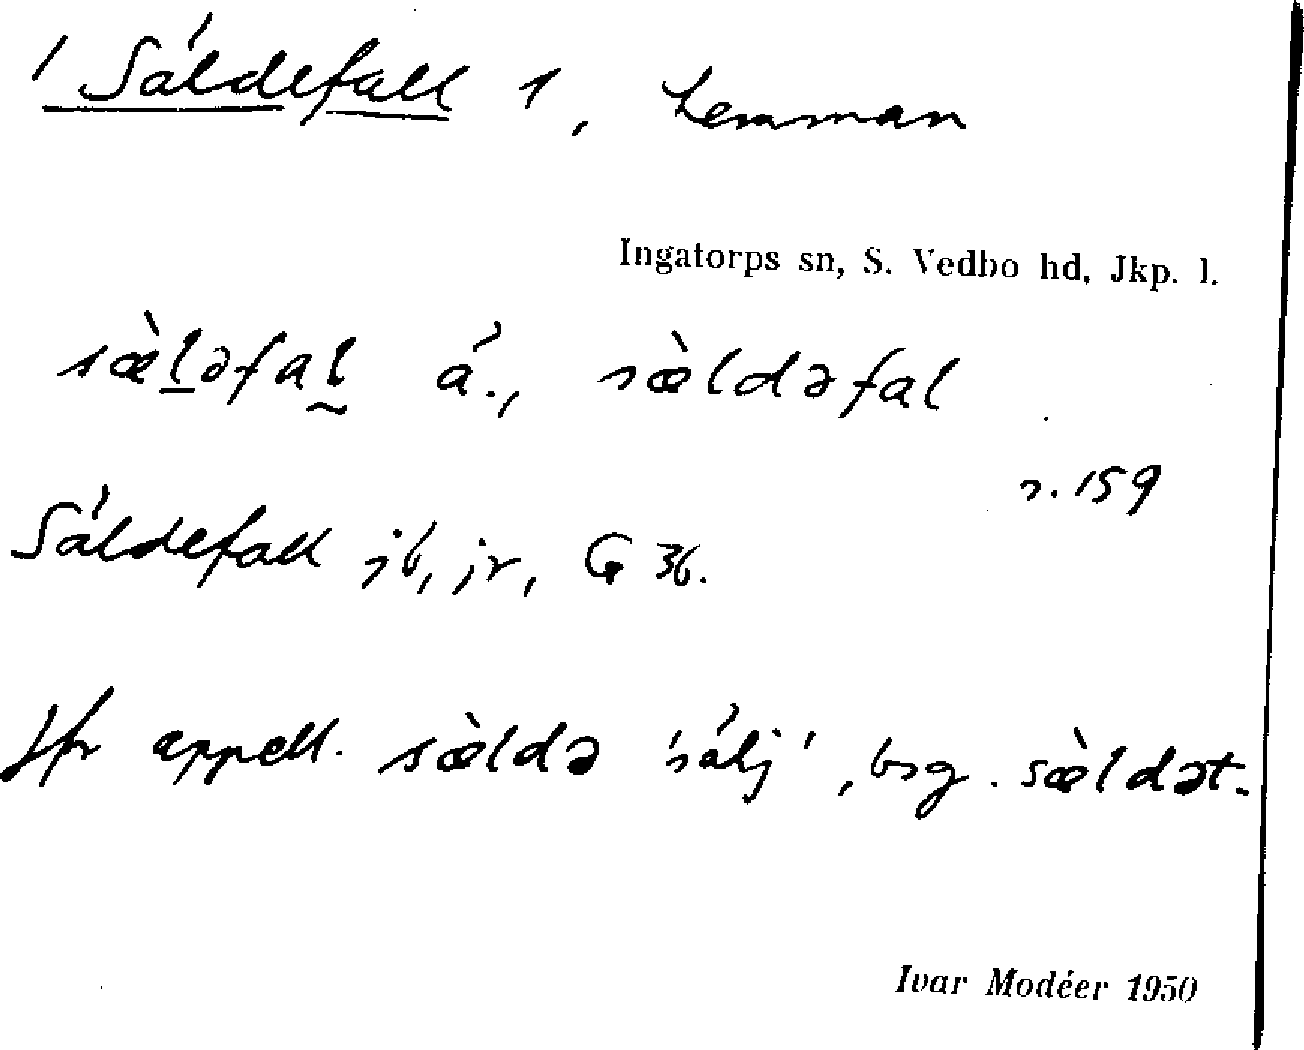 / Säldefall 1, hemman
Ingatorps sn, S. Vedbo hd, Jkp. l.
sæ̀ḻəfal̰ ä., sæ̀ldəfal
s. 159
Säldefall jb, jr, G 36.
Jfr appell. sæ̀ldə 'sälj', bsg. sæ̀ldət.
Ivar Modéer 1950